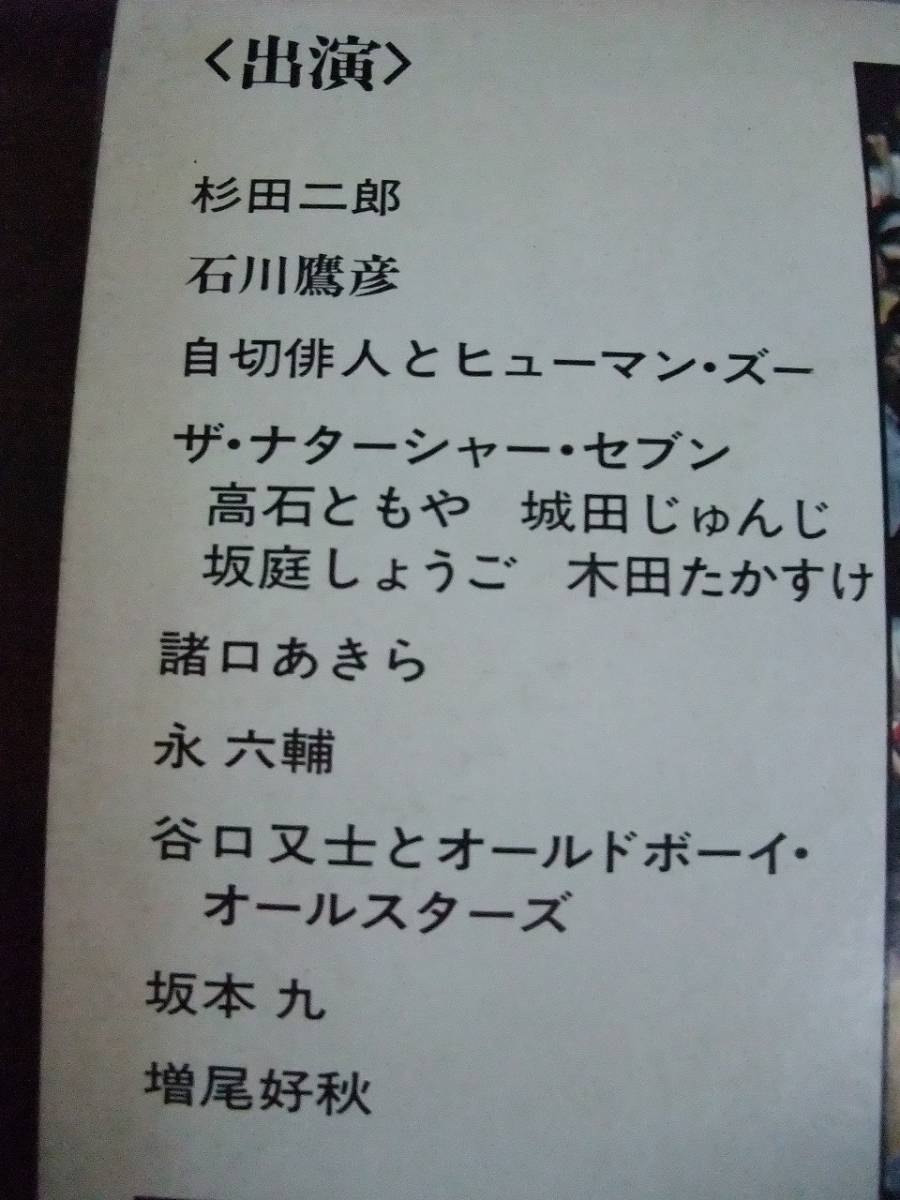 <出演>
杉田二郎
石川鷹彦
自切俳人とヒューマン・ズー
ザ・ナターシャー・セブン
高石ともや 城田じゅんじ
坂庭しょうご 木田たかすけ
諸口あきら
永 六輔
谷口又士とオールドボーイ・
オールスターズ
坂本 九
増尾好秋